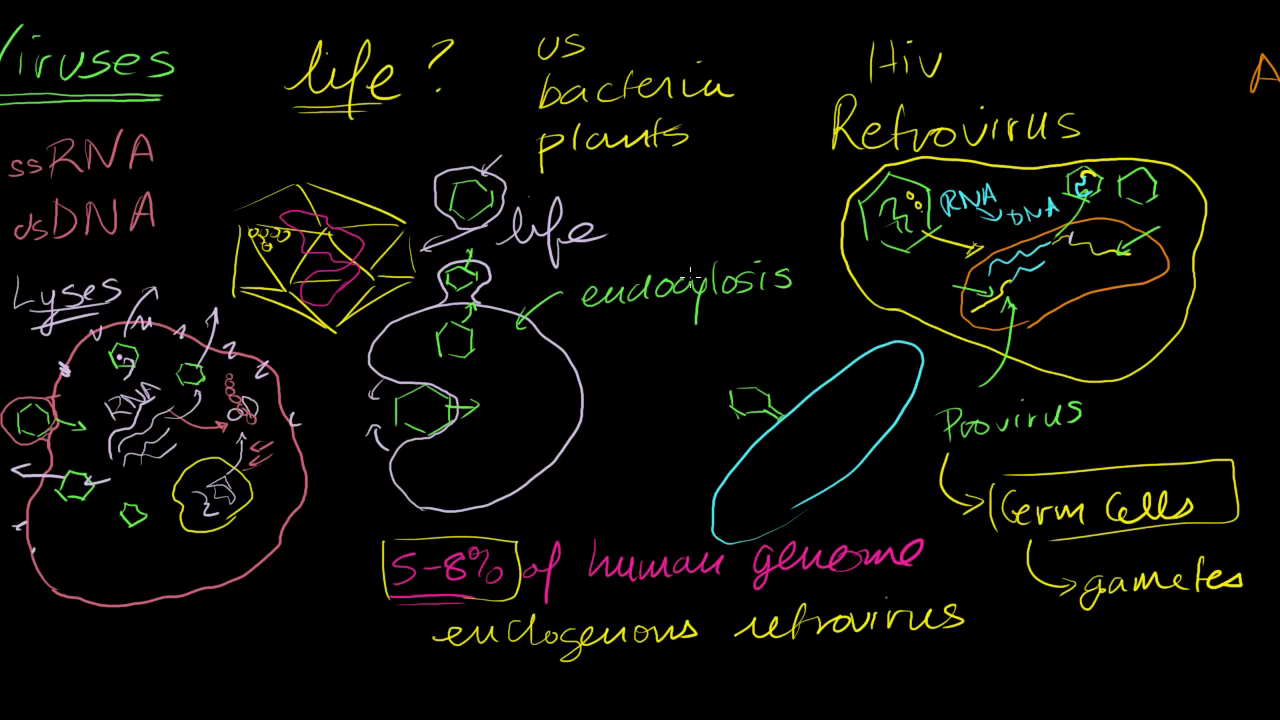 Viruses
ssRNA
dsDNA
Lyses
RNA
life ?
us
bacteria
plants
life
endocytosis
Hiv
Retrovirus
RNA
DNA
Provirus
Germ Cells
gametes
5-8% of human genome
endogenous retrovirus
A